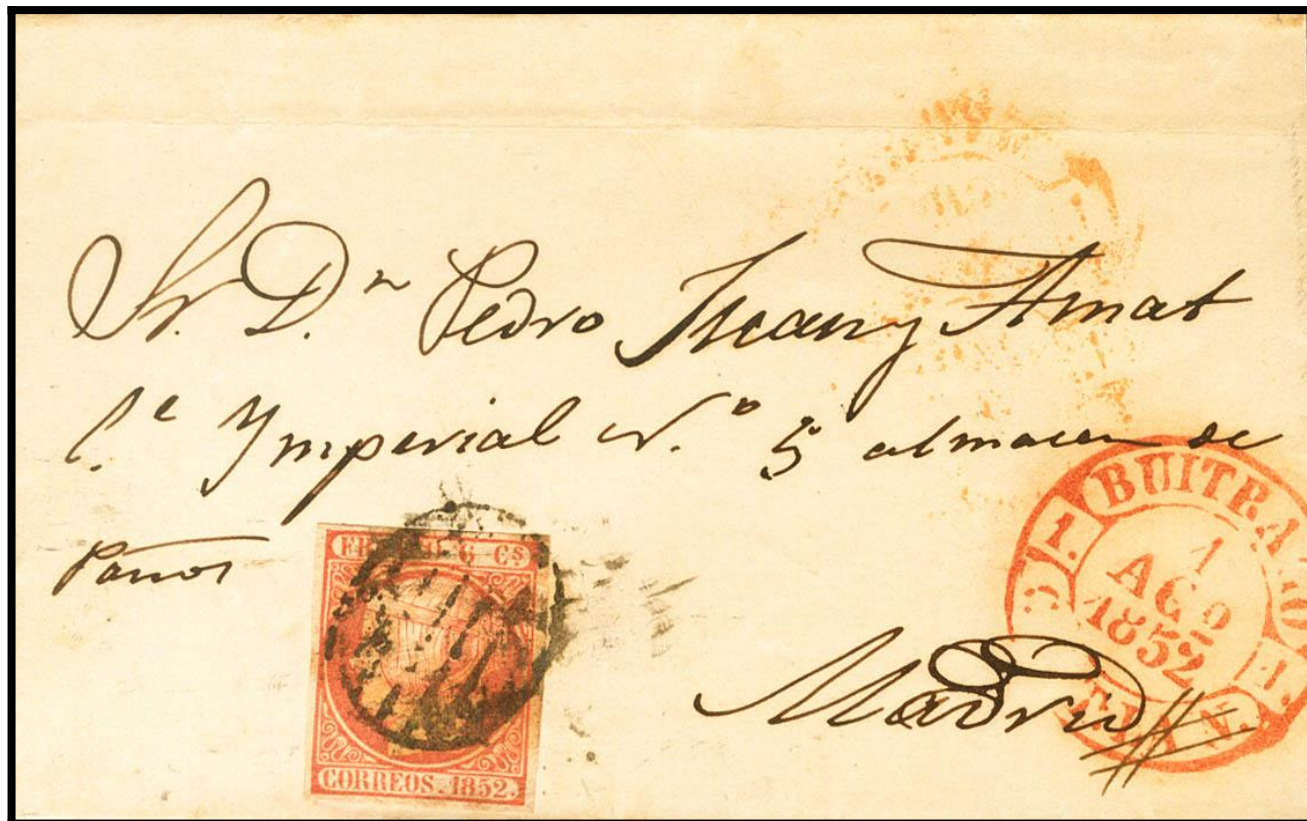 Sr. D.n Pedro Juan y Amat
C.e Ymperial N.o 5 almacen de
Paños
FRANCO 6 Cs
CORREOS. 1852.
Madrid
BUITRAGO
1
AGO
1852